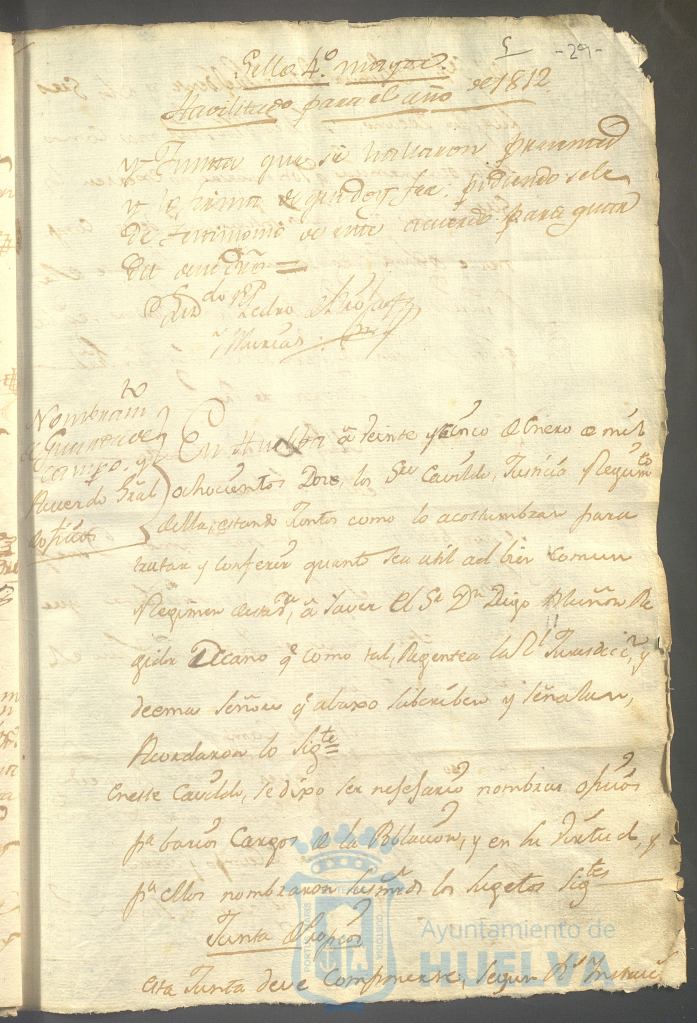 5 -29-
Sello 4º. mayor
Havilitado para el año de 1812.
y Junta que se hallaron presentes
y la firma de que doy fee. pidiendo sele
de testimonio de este acuerdo para guar
da
Pedro
Murias
Nombram.to
de Guardas de
campo, y
Acuerdo Gral
de ofícios
En Huelva à veinte y cinco de Enero de mil
ochocientos Doze, los Sres Cavildo, Justicia y Regim.to
della, estando Juntos como lo acostumbran para
tratar y conferir quanto sea util al bien comun
y Regimen de esta va, à saver El Sr. Dn. Diego Muñoz Re
gidor Decano qe. como tal, Regentea la Rl. Jurisdicc.n, y
demas Señores qe. abaxo subcriben y señalan,
Acordaron lo Sigte=
En este Cavildo, se dixo ser nesesario nombrar oficios
pa. barios Cargos de la Poblacion, y en su virtud, y
pa. ellos nombraron sus mrds los sugetos Sigtes
Junta de Propios
Esta Junta deve componerse, segun Rl. Instruc
Ayuntamiento de
HUELVA